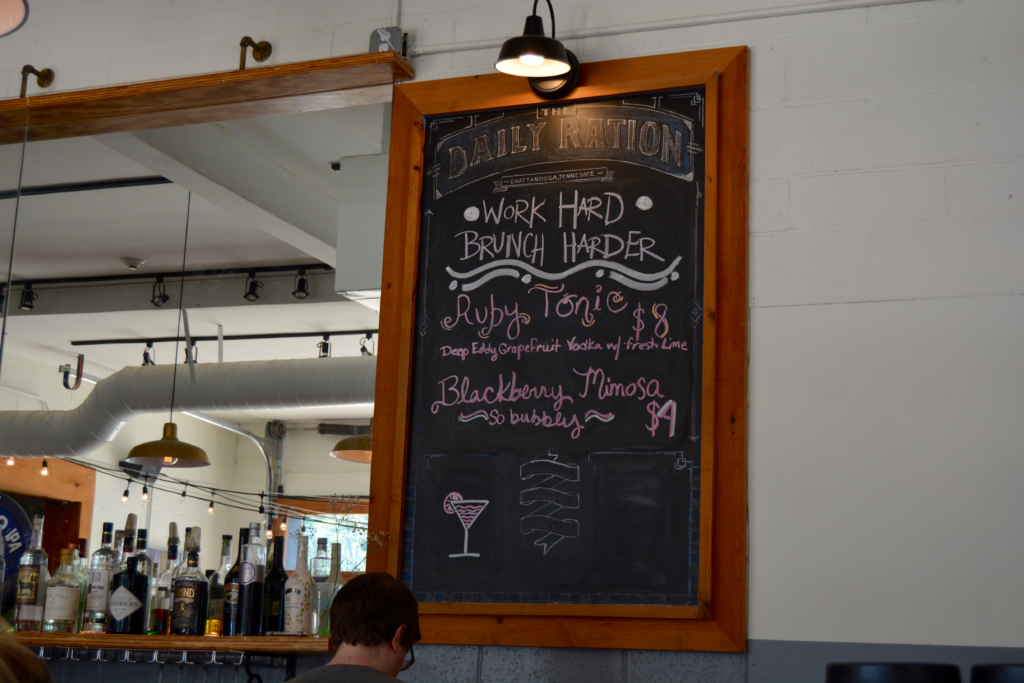 THE
DAILY RATION
CHATTANOOGA, TENNESSEE
WORK HARD
BRUNCH HARDER
Ruby Tonic $8
Deep Eddy Grapefruit Vodka w/ fresh Lime
Blackberry Mimosa
So bubbly $4
IPA
HENDRICK'S